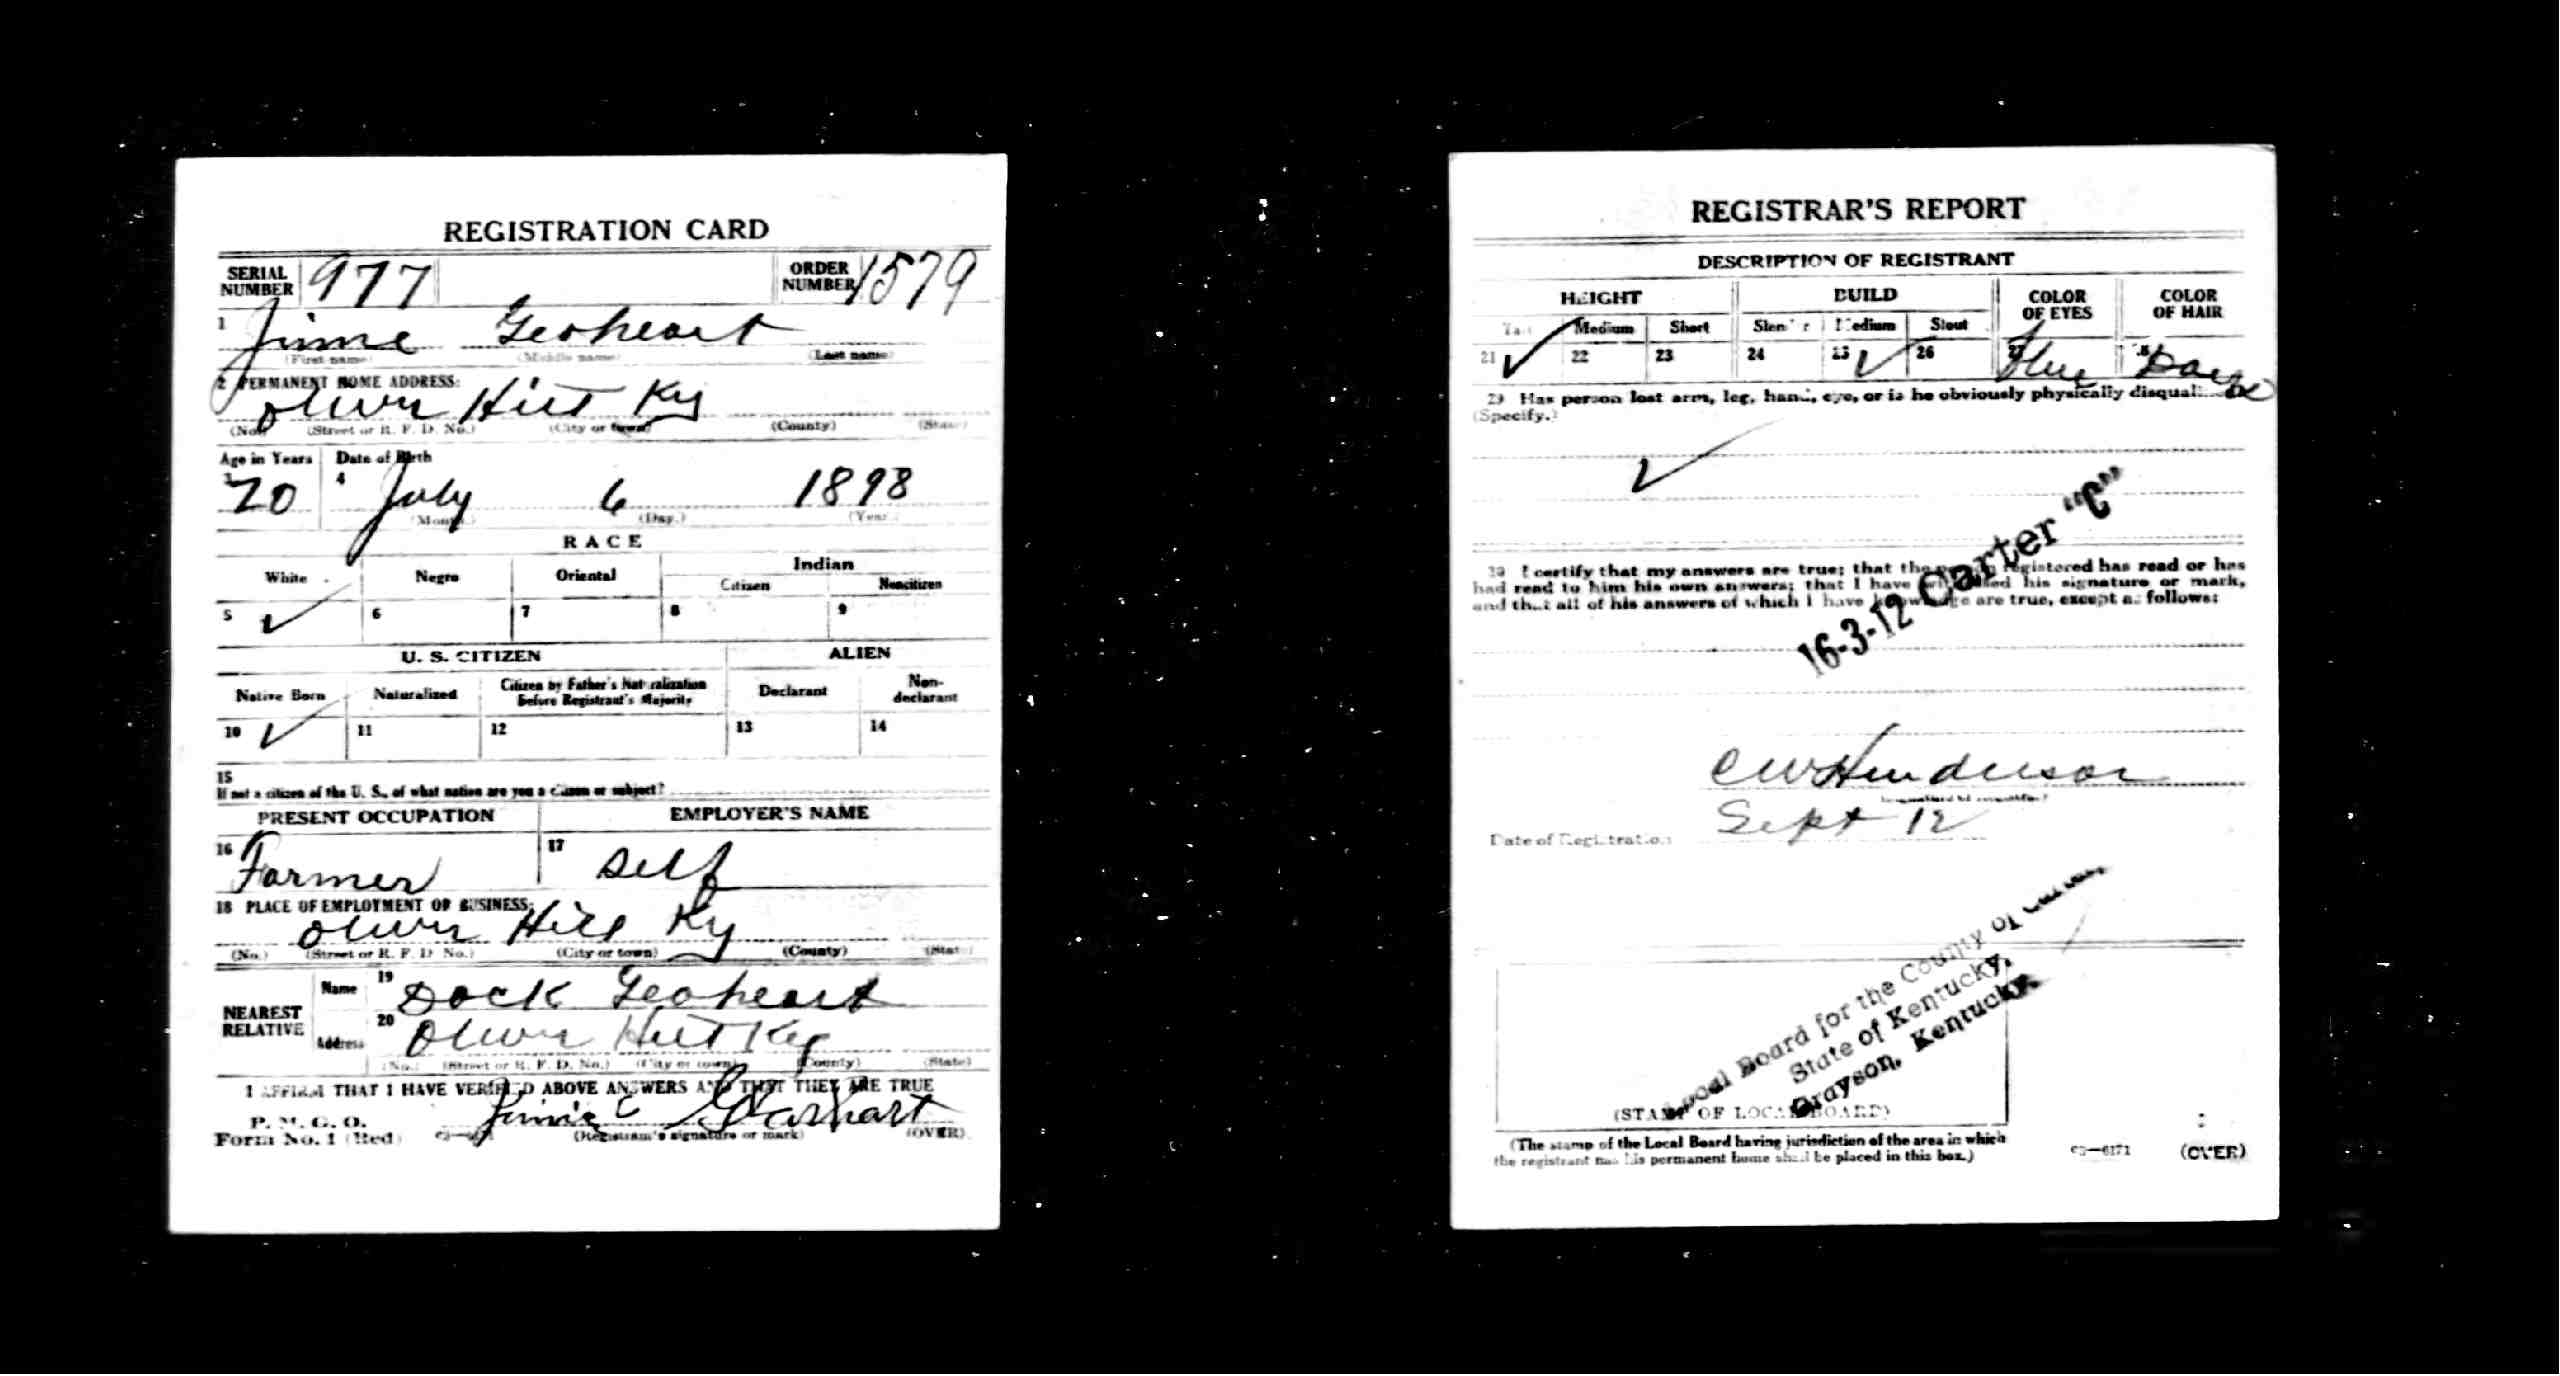 REGISTRATION CARD
SERIAL NUMBER 977 ORDER NUMBER 1579
1 Jimme Geoheart
(First name) (Middle name) (Last name)
2 PERMANENT HOME ADDRESS:
Oliver Hill Ky
(No.) (Street or R. F. D. No.) (City or town) (County) (State)
Age in Years Date of Birth
3 20 4 July 6 1898
(Month.) (Day.) (Year.)
RACE
White Negro Oriental Indian
Citizen Noncitizen
5 ✓ 6 7 8 9
U. S. CITIZEN ALIEN
Native Born Naturalized Citizen by Father's Naturalization before Registrant's Majority Declarant Non-declarant
10 ✓ 11 12 13 14
15
If not a citizen of the U. S., of what nation are you a citizen or subject?
PRESENT OCCUPATION EMPLOYER'S NAME
16 Farmer 17 Self
18 PLACE OF EMPLOYMENT OR BUSINESS:
Oliver Hill Ky
(No.) (Street or R. F. D. No.) (City or town) (County) (State)
NEAREST RELATIVE
Name 19 Dock Geoheart
Address 20 Oliver Hill Ky
(No.) (Street or R. F. D. No.) (City or town) (County) (State)
I AFFIRM THAT I HAVE VERIFIED ABOVE ANSWERS AND THAT THEY ARE TRUE
P. M. G. O.
Form No. 1 (Red) Jimie Gearhart
(Registrant's signature or mark) (OVER)
REGISTRAR'S REPORT
DESCRIPTION OF REGISTRANT
HEIGHT BUILD COLOR OF EYES COLOR OF HAIR
Tall Medium Short Slender Medium Stout
21 ✓ 22 23 24 25 ✓ 26 27 Blue 28
29 Has person lost arm, leg, hand, eye, or is he obviously physically disqualified?
(Specify.)
✓
30 I certify that my answers are true; that the person registered has read or has
had read to him his own answers; that I have witnessed his signature or mark,
and that all of his answers of which I have knowledge are true, except as follows:
16-3-12 Carter "C"
C W Henderson
Date of Registration Sept 12
Local Board for the County of Carter,
State of Kentucky,
Grayson, Kentucky.
(STAMP OF LOCAL BOARD)
(The stamp of the Local Board having jurisdiction of the area in which
the registrant has his permanent home shall be placed in this box.)
03—6171 (OVER)